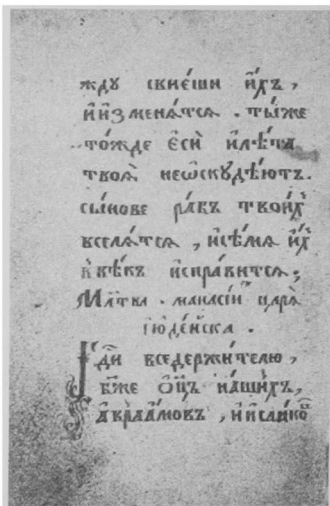 жду свиеши и҆́хъ,
и҆измѣнѧ́тсѧ . ты́же
то́жде є҆сѝ и҆лѣ́та
твоѧ̀ неѡ҆скꙋдѣ́ютъ.
сы́нове ра́бъ твои́хъ
вселѧ́тсѧ , и҆сѣ́мѧ и҆́хъ
ввѣ́къ и҆спра́витсѧ:
Мл҃тва . манасі́и царѧ̀
і҆ꙋде́йска .
Гд҇и вседержи́телю,
бж҃е ѻ҆ц҃ъ на́шихъ,
а҆враа́мовъ , и҆і҆саа́ко